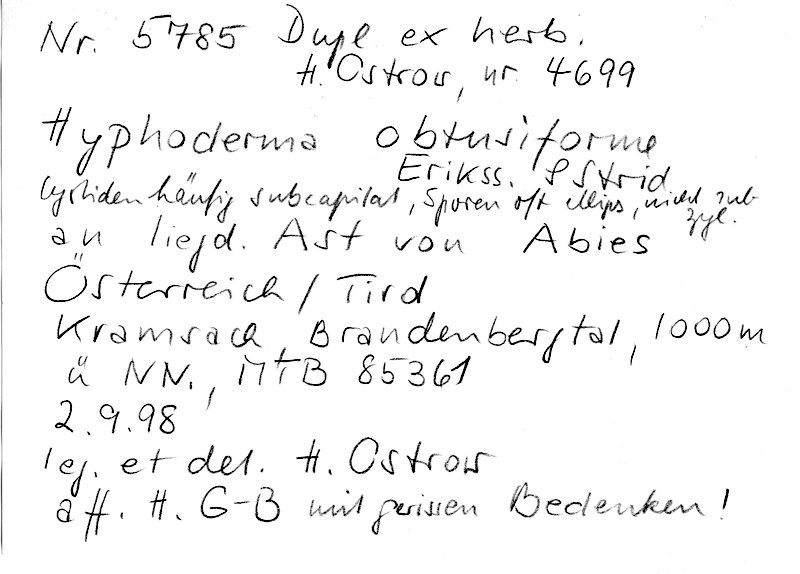 Nr. 5785 Dupl ex herb.
H. Ostrow, nr. 4699
Hyphoderma obtusiforme
Erikss. & Strid
Cystiden häufig subcapitat, Sporen oft ellips, nicht sub
zyl.
an liegd. Ast von Abies
Österreich / Tirol
Kramsach, Brandenbergtal, 1000m
ü NN., MTB 85361
2.9.98
leg. et det. H. Ostrow
aff. H. G-B mit gewissen Bedenken!